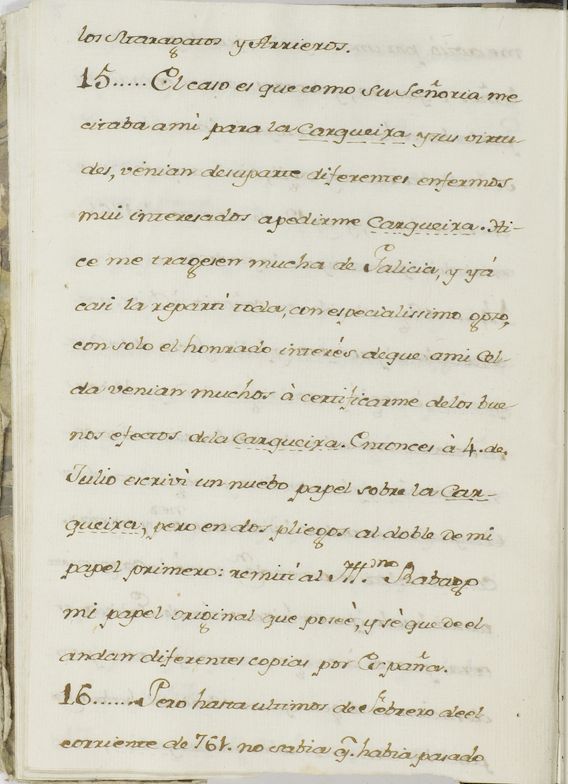 los Maragatos y Arrieros.
15..... El caso es que como Su Señoria me
citaba ami para la Carqueira y sus virtu-
des, venian desuparte diferentes enfermos
mui interesados apedirme Carqueira. Hi-
ce me tragesen mucha de Galicia, y yá
casi la repartí toda, con especialissimo gozo,
con solo el honrado interés deque ami Cel-
da venian muchos à certificarme delos bue-
nos efectos dela Carqueira. Entonces à 4. de
Julio escrivì un nuebo papel sobre la Car-
queira, pero en dos pliegos al doble de mi
papel primero: remití al Rmo. Rabago
mi papel original que poseè, y sè que de el
andan diferentes copias por España.
16...... Pero hasta ultimos de Febrero de el
corriente de 761. no sabia q. habia pasado